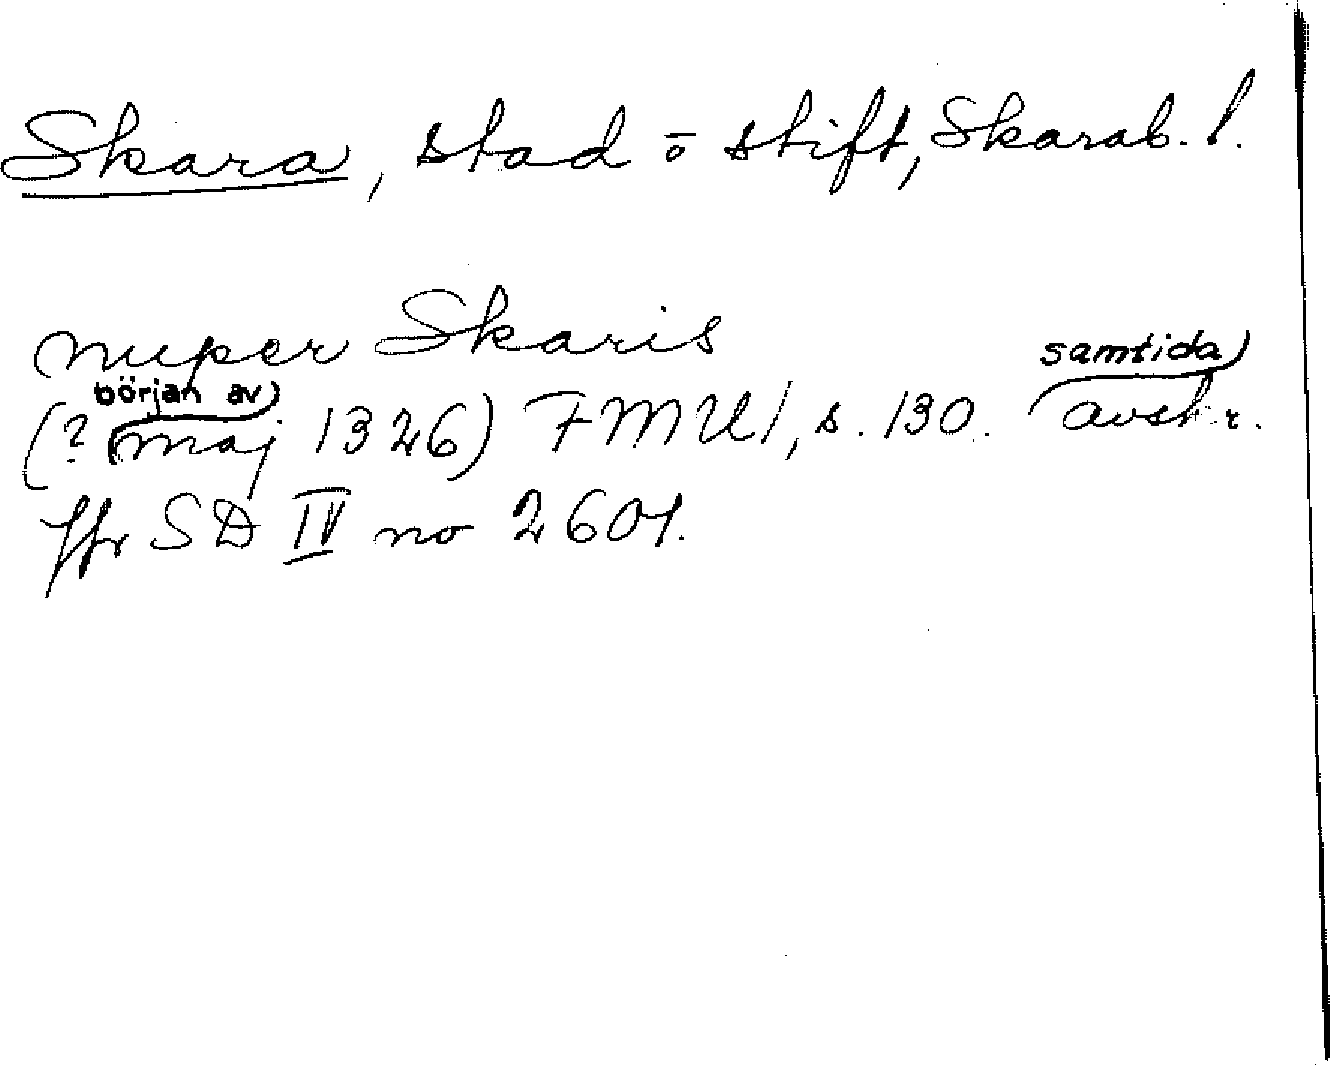 Skara, stad o stift, Skarab. l.
nuper Skaris
(? början av maj 1326) FMU 1, s. 130. samtida avskr.
Jfr SD IV no 2601.